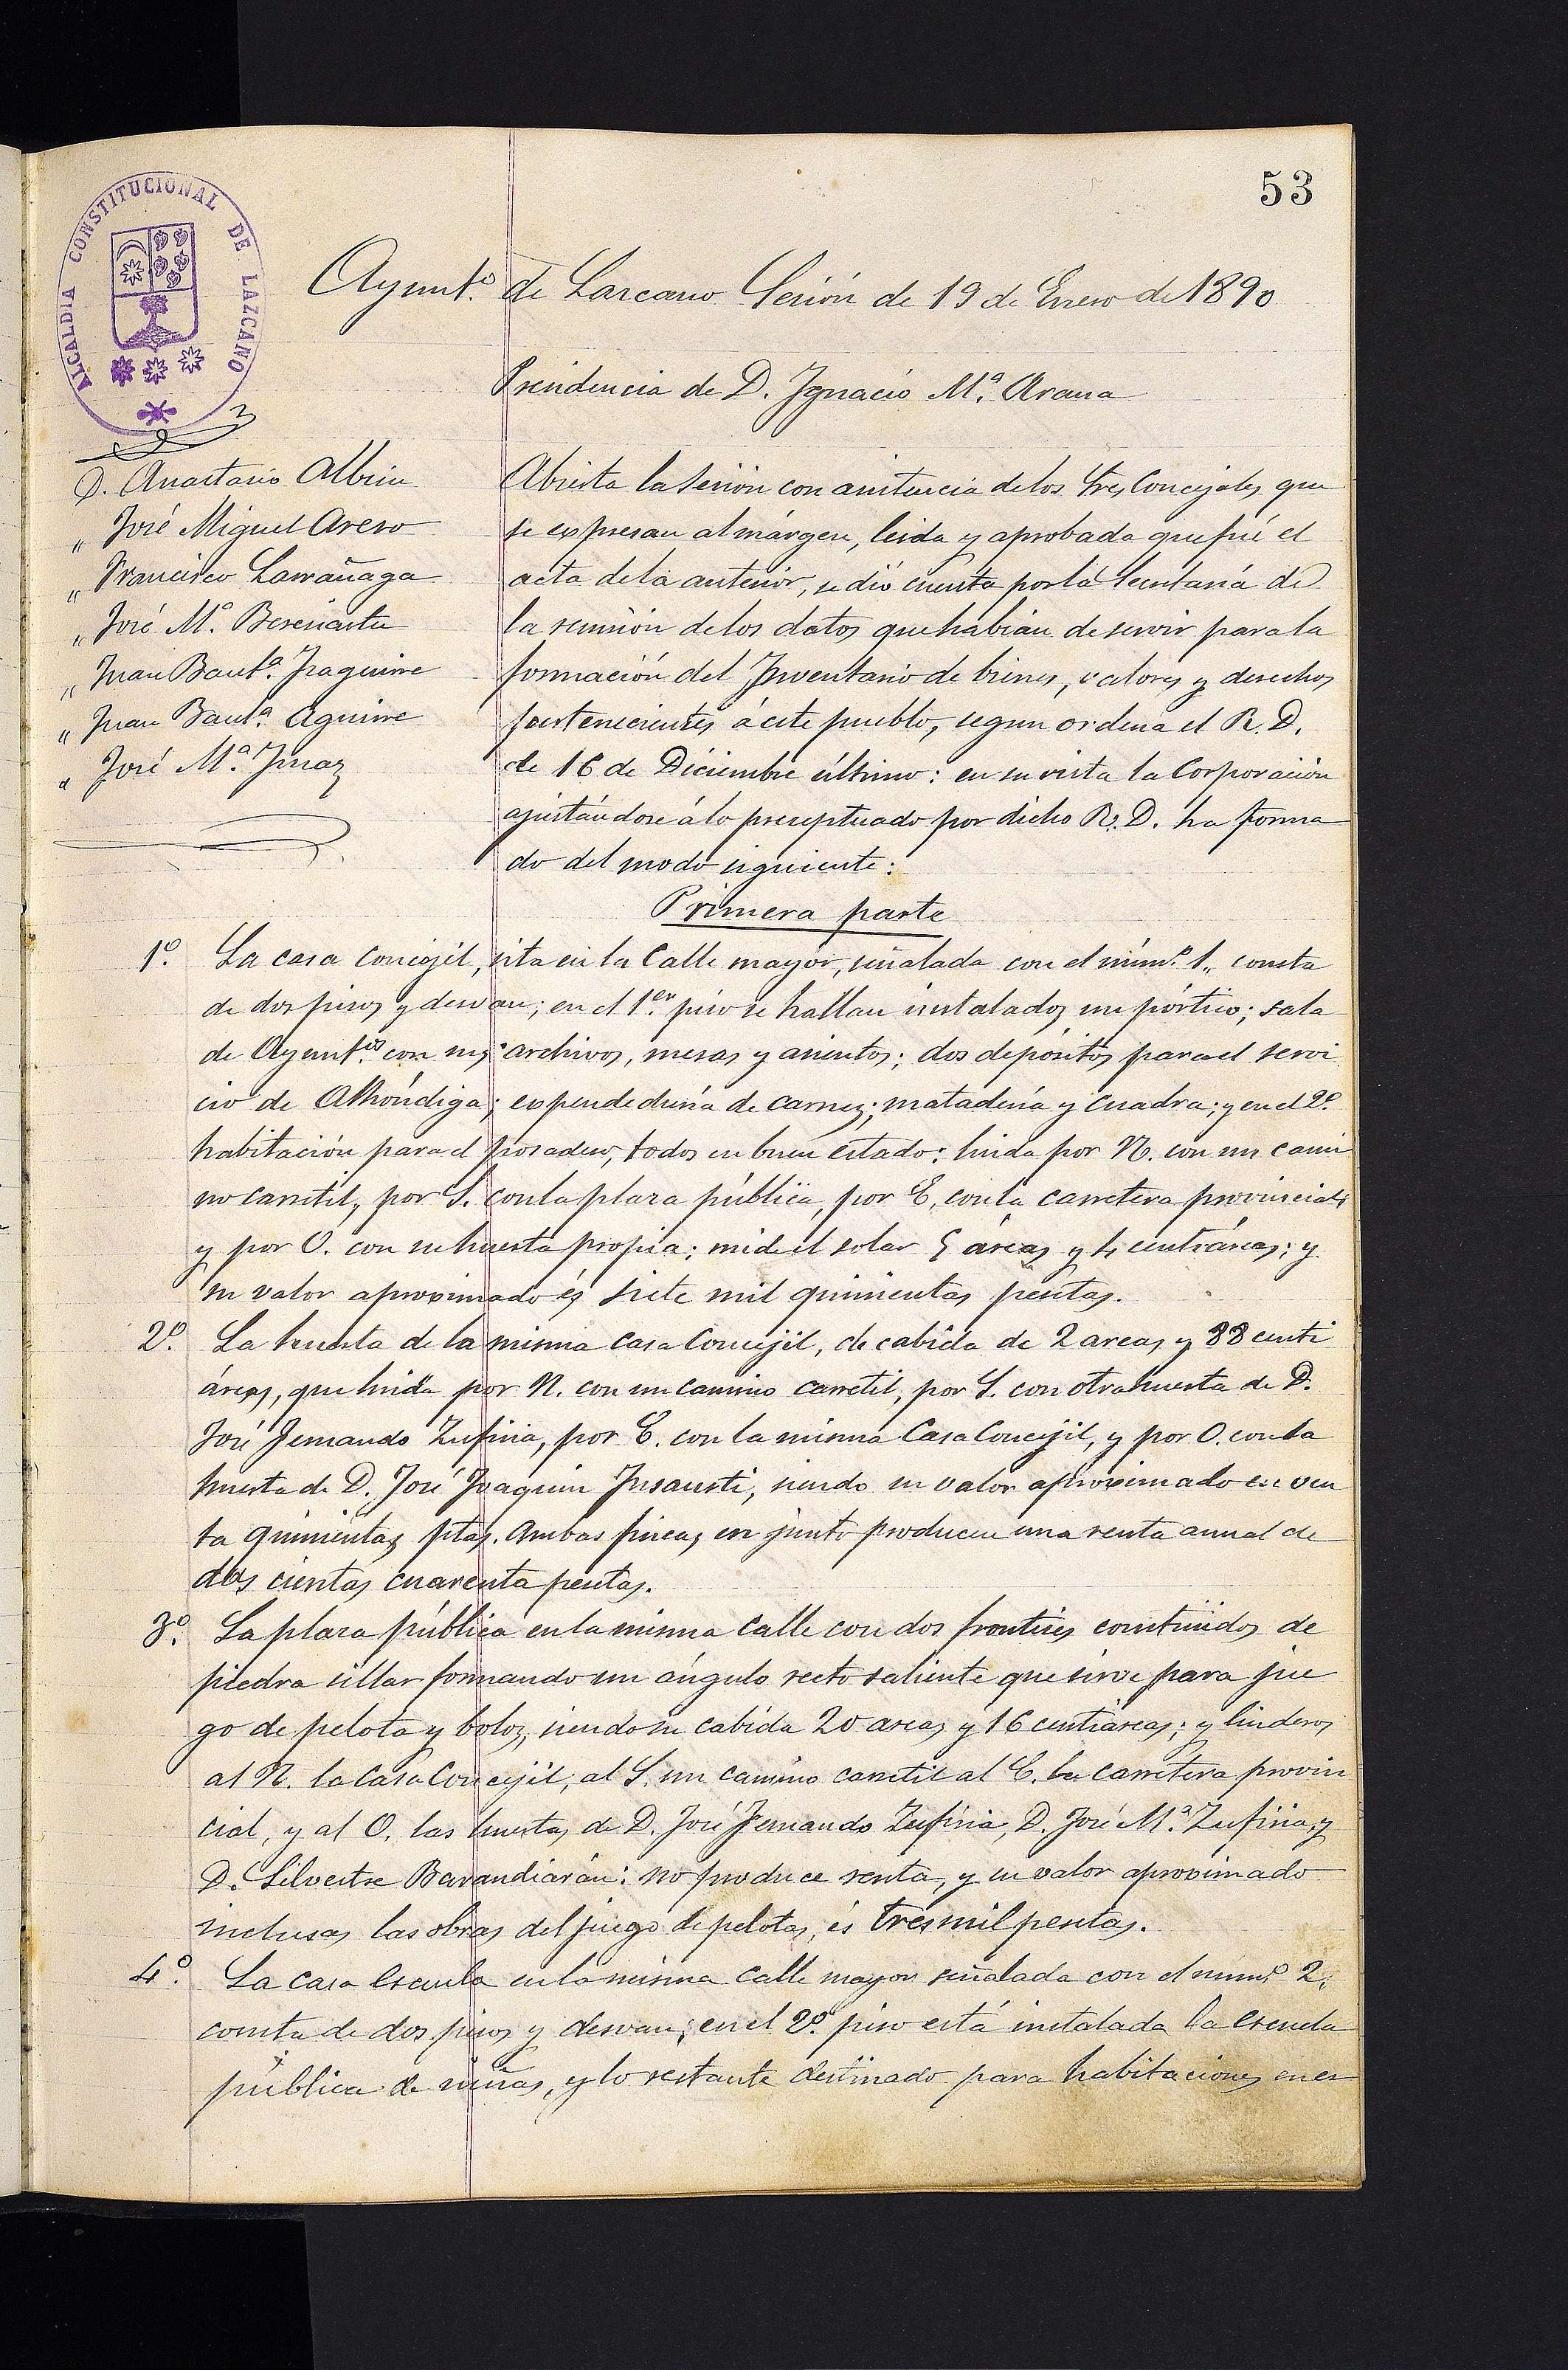 53
ALCALDIA CONSTITUCIONAL DE LAZCANO
Ayunt.º de Lazcano Sesión de 19 de Enero de 1890
Presidencia de D. Ignacio M.ª Arana
D. Anastasio Albisu
„ José Miguel
„ Francisco Larrañaga
„ José M.ª Beresiartu
„ Juan Baut.ª
„ Juan Baut.ª Aguirre
„ José M.ª Imaz
Abierta la Sesión con asistencia de los Sres Concejales que
se expresan al márgen, leida y aprobada que fué el
acta de la anterior, se dió cuenta por la Secretaría de
la reunión de los datos que habian de servir para la
formación del Inventario de bienes, valores y derechos
pertenecientes á este pueblo, segun ordena el R. D.
de 16 de Diciembre último: en su vista la Corporación
ajustándose á lo preceptuado por dicho R. D. ha forma
do del modo siguiente:
Primera parte
1º. La casa concejil, sita en la Calle mayor, señalada con el núm.º 1, consta
de dos pisos y desvan; en el 1.er piso se hallan instalados un pórtico; sala
de Ayunt.os con sus archivos, mesas y asientos; dos depósitos para el servi
cio de Alhóndiga; expendeduría de carnes; matadería y cuadra; y en el 2º.
habitación para el posadero, todos en buen estado: linda por N. con un cami
no carretil, por S. con la plaza pública, por E. con la carretera provincial;
y por O. con su huerta propia; mide el solar 5 áreas y 4 centiáreas; y
su valor aproximado és siete mil quinientas pesetas.
2º. La huerta de la misma casa Concejil, de cabida de 2 areas y 88 centi
áreas, que linda por N. con un camino carretil, por S. con otra huerta de D.
José Fernando Zufiria, por E. con la misma Casa Concejil, y por O. con la
huerta de D. José Joaquin Insausti, siendo su valor aproximado en ven
ta quinientas ptas. Ambas fincas en junto producen una renta anual de
dos cientas cuarenta pesetas.
3º. La plaza pública en la misma calle con dos frontises construidos de
piedra sillar formando un ángulo recto saliente que sirve para jue
go de pelota y bolos, siendo su cabida 20 areas y 16 centiáreas; y linderos
al N. la Casa Concejil, al S. un camino carretil al E. la carretera provin
cial, y al O. las huertas de D. José Fernando Zufiria, D. José M.ª Zufiria, y
D. Silvestre Barandiarán: no produce renta, y su valor aproximado
inclusas las obras del juego de pelotas, és tres mil pesetas.
4º. La casa Escuela en la misma calle mayor señalada con el núm.º 2,
consta de dos pisos y desvan; en el 2º. piso está instalada la escuela
pública de niñas, y lo restante destinado para habitaciones en es